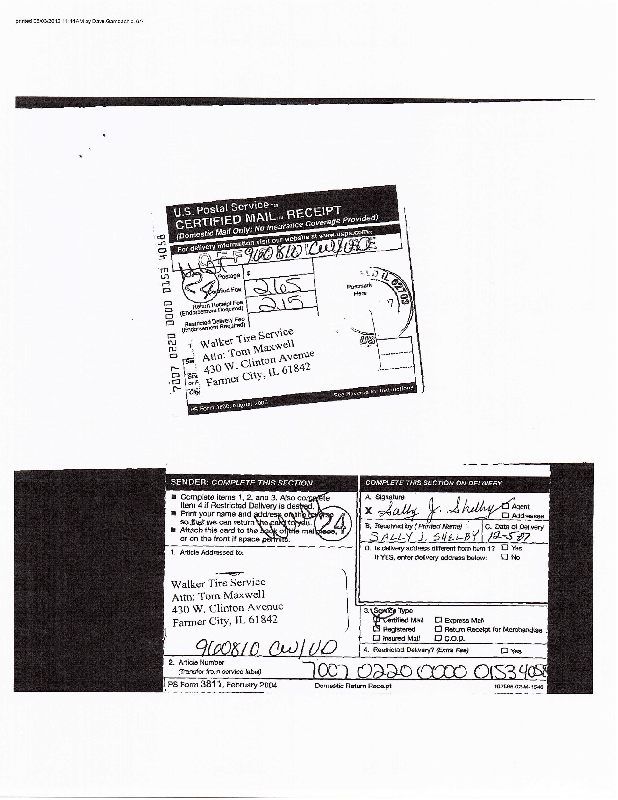 U.S. Postal Service™
CERTIFIED MAIL™ RECEIPT
(Domestic Mail Only; No Insurance Coverage Provided)
For delivery information visit our website at www.usps.com
960810 CW/
Postage $
Certified Fee 2.65
Return Receipt Fee
(Endorsement Required) 2.15
Postmark
Here
Restricted Delivery Fee
(Endorsement Required)
7007 0220 0000 0153 4058
Walker Tire Service
Attn: Tom Maxwell
430 W. Clinton Avenue
Farmer City, IL 61842
PS Form 3800, August 2004 See Reverse for Instructions
SENDER: COMPLETE THIS SECTION
■ Complete items 1, 2, and 3. Also complete
item 4 if Restricted Delivery is desired.
■ Print your name and address on the reverse
so that we can return the card to you.
■ Attach this card to the back of the mailpiece,
or on the front if space permits.
24
1. Article Addressed to:
Walker Tire Service
Attn: Tom Maxwell
430 W. Clinton Avenue
Farmer City, IL 61842
960810 CW/
COMPLETE THIS SECTION ON DELIVERY
A. Signature
X Sally J. Shelby
☐ Agent
☐ Addressee
B. Received by (Printed Name) C. Date of Delivery
SALLY J. SHELBY 12-5-07
D. Is delivery address different from item 1? ☐ Yes
If YES, enter delivery address below: ☐ No
3. Service Type
Certified Mail ☐ Express Mail
☐ Registered ☐ Return Receipt for Merchandise
☐ Insured Mail ☐ C.O.D.
4. Restricted Delivery? (Extra Fee) ☐ Yes
2. Article Number
(Transfer from service label) 7007 0220 0000 0153 4058
PS Form 3811, February 2004 Domestic Return Receipt 102595-02-M-1540